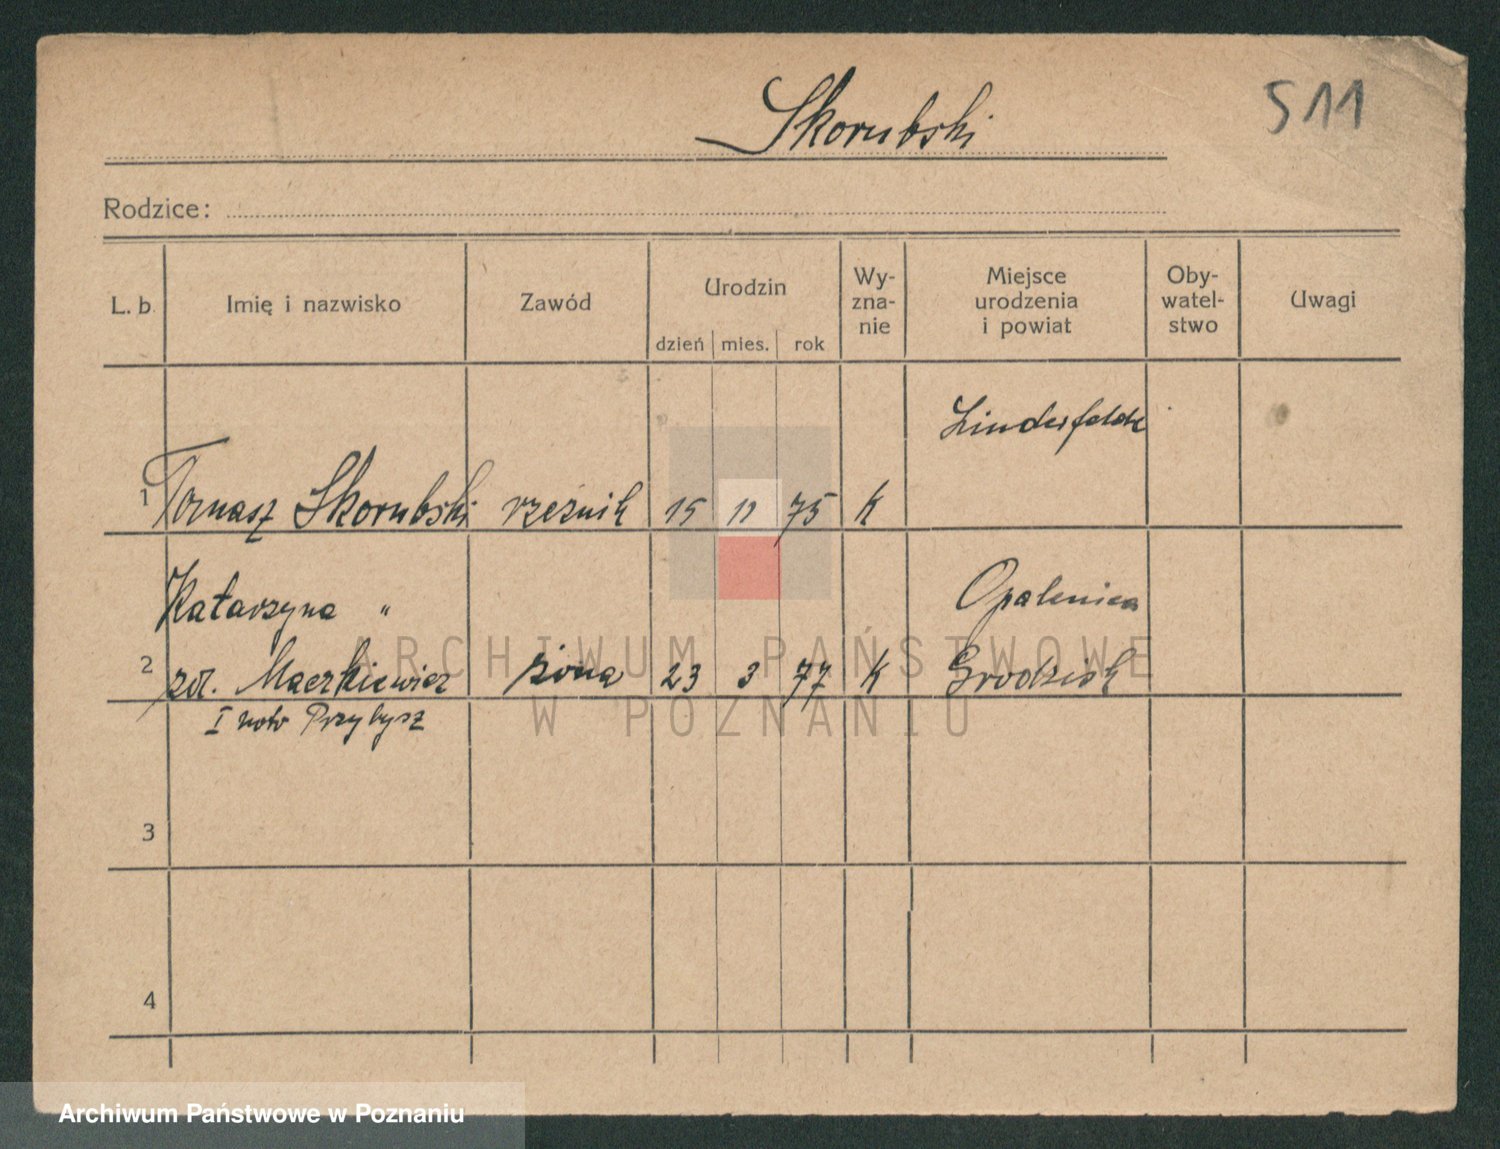 Skorubski
511
Rodzice:
L. b. Imię i nazwisko Zawód Urodzin dzień mies. rok Wy-zna-nie Miejsce urodzenia i powiat Oby-watel-stwo Uwagi
Linderfelde
1 Tomasz Skorubski rzeźnik 15 11 75 K
Katarzyna " Opalenica
2 zd. Maczkiewicz żona 23 3 77 K Grodzisk
I voto Przybysz
3
4
ARCHIWUM PAŃSTWOWE
W POZNANIU
Archiwum Państwowe w Poznaniu